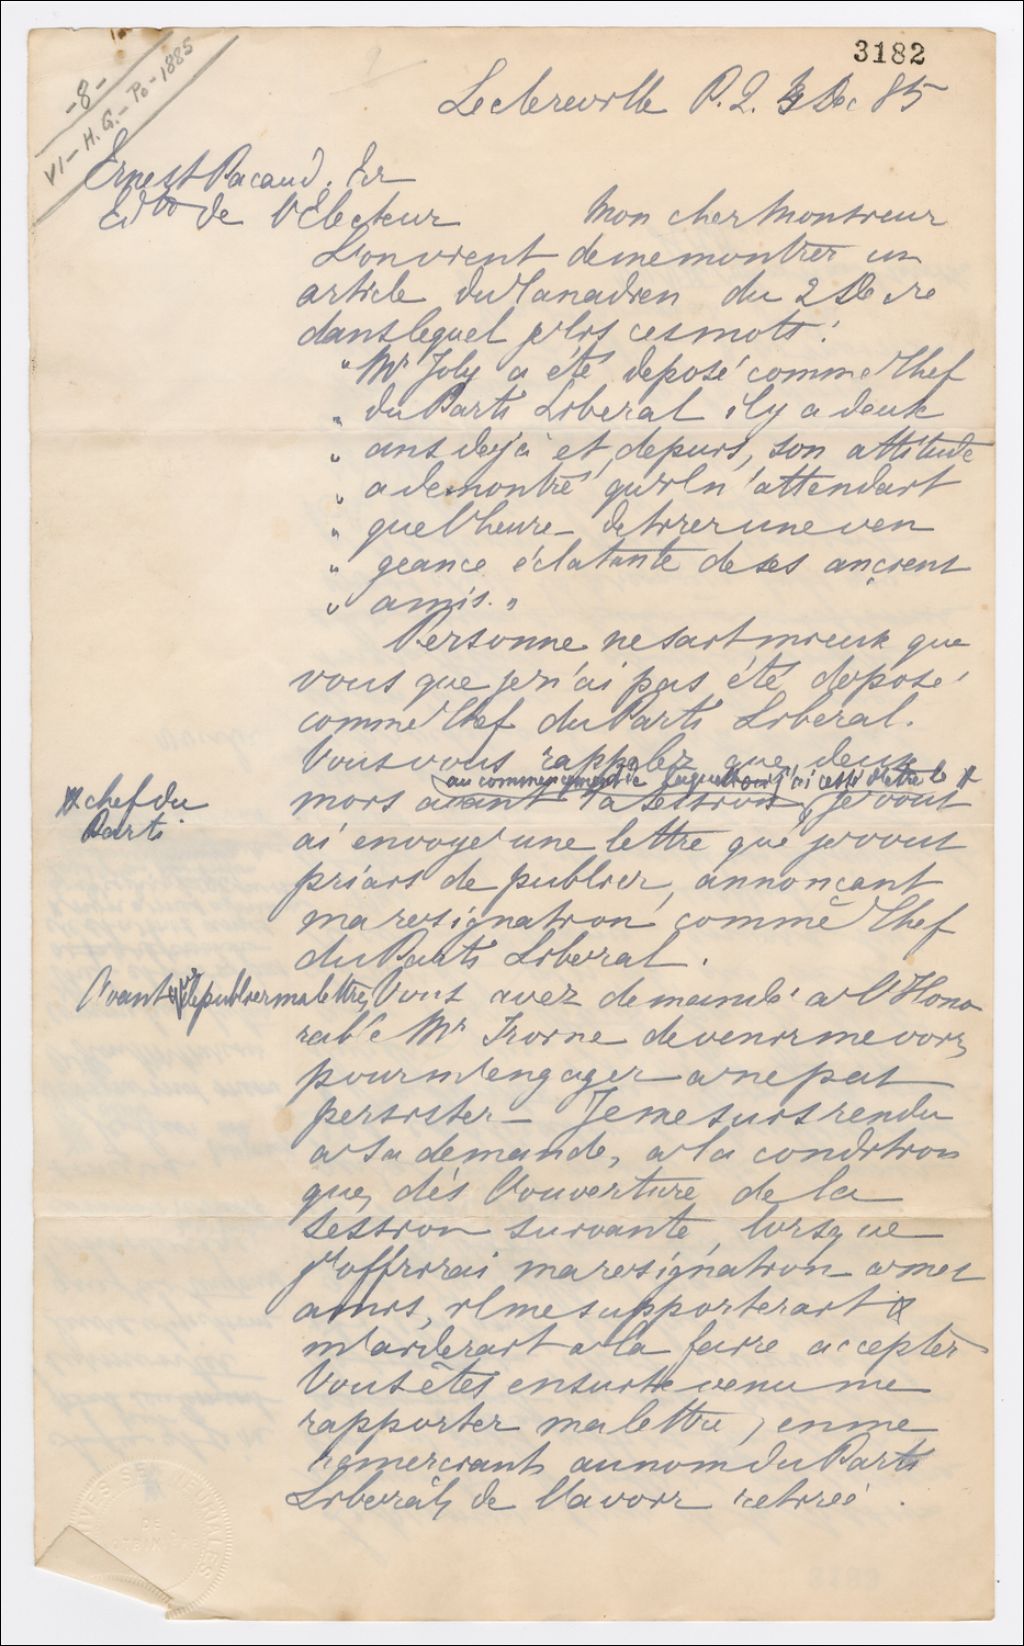 3182
-8-
VI-H.G.-Po-1885
Leclercville P.Q. Dec 85
Ernest Pacaud. Er
Edr de l'Electeur Mon cher Monsieur
L'on vient de me montrer un
article du Canadien du 2 Decre
dans lequel je lis ces mots:
" Mr Joly a été deposé comme Chef
" du Parti Liberal il y a deux
" ans deja et, depuis, son attitude
" a demontré qu'il n'attendait
" que l'heure de tirer une ven
" geance éclatante de ses anciens
" amis."
Personne ne sait mieux que
vous que je n'ai pas été deposé
comme Chef du Parti Liberal.
Vous vous rappelez que, deux
au commencement de laquelle j'ai cessé d'etre le x
mois avant la session, je vous
x chef du
Parti
ai envoyé une lettre que je vous
priais de publier, annonçant
ma resignation comme Chef
du Parti Liberal.
Avant de publier ma lettre, Vous avez demandé a l'Hono
rable Mr Irvine de venir me voir,
pour m'engager a ne pas
persister - Je me suis rendu
a sa demande, a la condition
que, dès l'ouverture de la
session suivante, lorsque
j'offrirai ma resignation a mes
amis, il me supporterait &
m'aiderait a la faire accepter
Vous êtes ensuite venu me
rapporter ma lettre, en me
remerciant, au nom du Parti
Liberal, de l'avoir retirée.